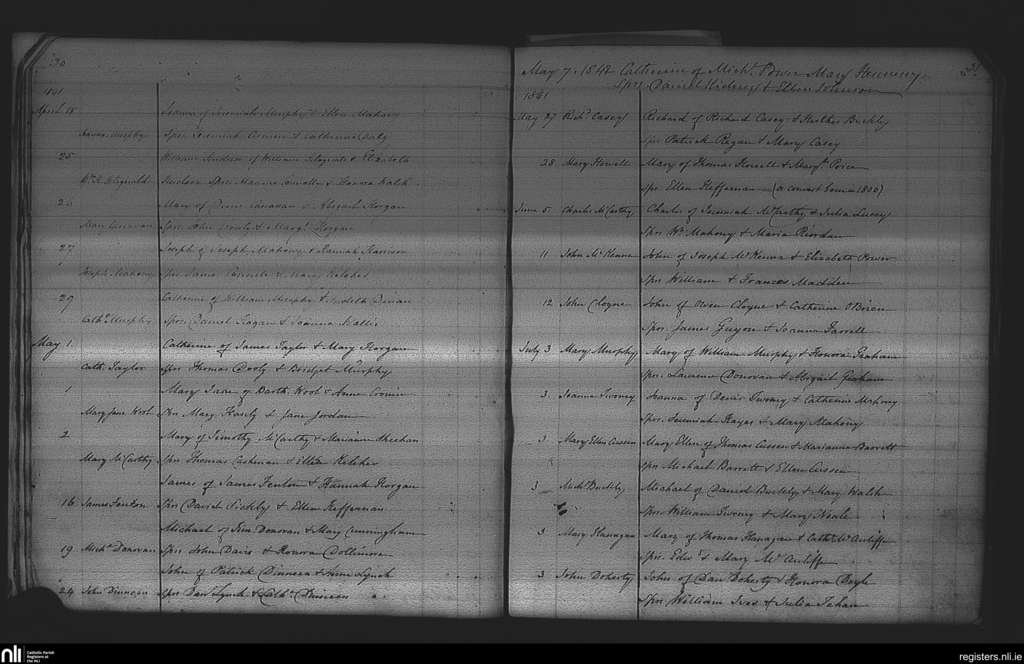 30
1841
April 18 Joanna of Jeremiah Murphy & Ellen Mahony
Joanna Murphy Sprs Jeremiah Cronin & Catherine Daly
25 William of William Fitzgerald & Elizabeth
Wm Fitzgerald Sprs & Honora Walsh
25 Mary of Denis Canavan & Abigail Horgan
Mary Canavan Sprs John & Margt Horgan
27 Joseph of Joseph Mahony & Hannah Harrison
Joseph Mahony Spr James & Mary Kelcher
29 Catherine of William Murphy & Judith
Cathe Murphy Sprs Daniel Hogan & Joanna Wallis
May 1 Catherine of James Taylor & Mary Horgan
Cath. Taylor Spr Thomas Dooly & Bridget Murphy
1 Mary Jane of Barth. Wool & Anne Cronin
Mary Jane Wool Spr Mary Hasely & Jane Jordan
2 Mary of Timothy McCarthy & Marianne Sheehan
Mary McCarthy Spr Thomas Cashman & Ellen Kelcher
James of James Fenton & Hannah Horgan
16 James Fenton Spr David & Ellen Heffernan
Michael of Donovan & Mary Cunningham
19 Michl Donovan Spr John Davis & Honora
John of Patrick Dinneen & Anne Lynch
24 John Dinneen Spr Dan Lynch & Cathe Dinneen
31
May 7. 1842 Catherine of Michl Power Mary Hennessy
Sprs Daniel & Ellen Johnson
1841
May 27 Richd Casey Richard of Richard Casey & Buckly
Spr Patrick Regan & Mary Casey
28 Mary Howell Mary of Thomas Howell & Margt Price
Spr Ellen Heffernan (a convert born 1800)
June 5 Charles McCarthy Charles of Jeremiah McCarthy & Julia Lucey
Spr Wm Mahony & Maria Riordan
11 John McKenna John of Joseph McKenna & Elizabeth Power
Spr William & Frances Madden
12 John Cloyne John of Owen Cloyne & Catherine OBrien
Spr James Guyon & Joanna Farrell
July 3 Mary Murphy Mary of William Murphy & Honora Graham
Spr. Laurence Donovan & Abigail Graham
3 Joanna Twomey Joanna of Denis Twomey & Catherine Mahony
Spr. Jeremiah Hayes & Mary Mahony
3 Mary Ellen Cussen Mary Ellen of Thomas Cussen & Marianne Barrett
Spr Michael Barrett & Ellen Cussen
3 Michl Buckly Michael of Daniel Buckly & Mary Walsh
Spr William Twomey & Mary Neale
3 Mary Flanagan Mary of Thomas Flanagan & Cathe McAuliffe
Spr. Edwd & Mary McAuliffe
3 John Doherty John of Dan Doherty & Honora Boyle
Spr William Ives & Julia Jahan
nli
Catholic Parish
Registers at
the NLI
registers.nli.ie